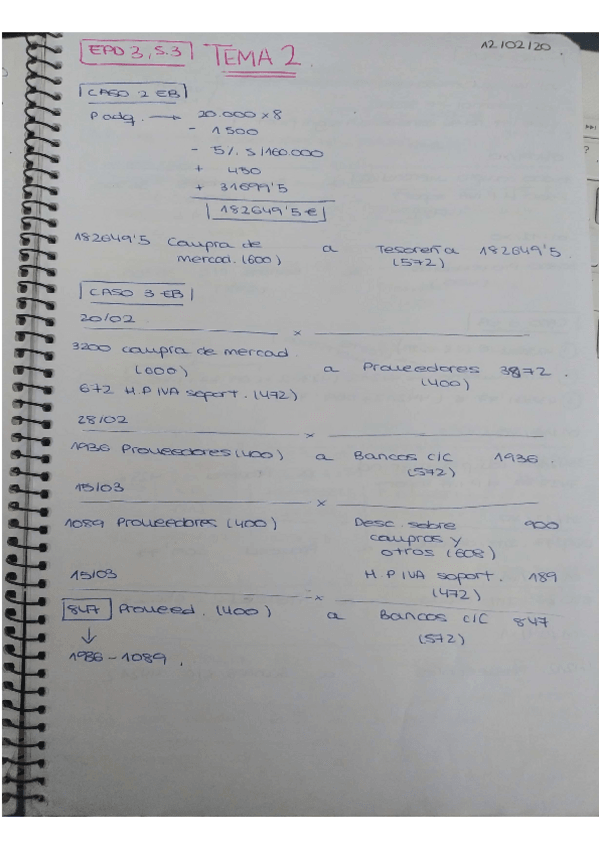 EPD 3, S.3 TEMA 2 12/02/20.
CASO 2 EB
P adq. → 20.000 x 8
- 1500
- 5% S/160.000
+ 450
+ 31699'5
182649'5 €
182649'5 Compra de a Tesorería 182649'5.
mercad. (600) (572)
CASO 3 EB
20/02
x
3200 compra de mercad.
(600) a Proveedores 3872.
672 H.P IVA soport. (472) (400)
28/02
x
1936 Proveedores (400) a Bancos C/C 1936.
(572)
15/03
x
1089 Proveedores (400) Desc. sobre 900
compras y
otros (608)
15/03 H.P IVA soport. 189
x (472)
847 Proveed. (400) a Bancos C/C 847
↓ (572)
1936 - 1089.